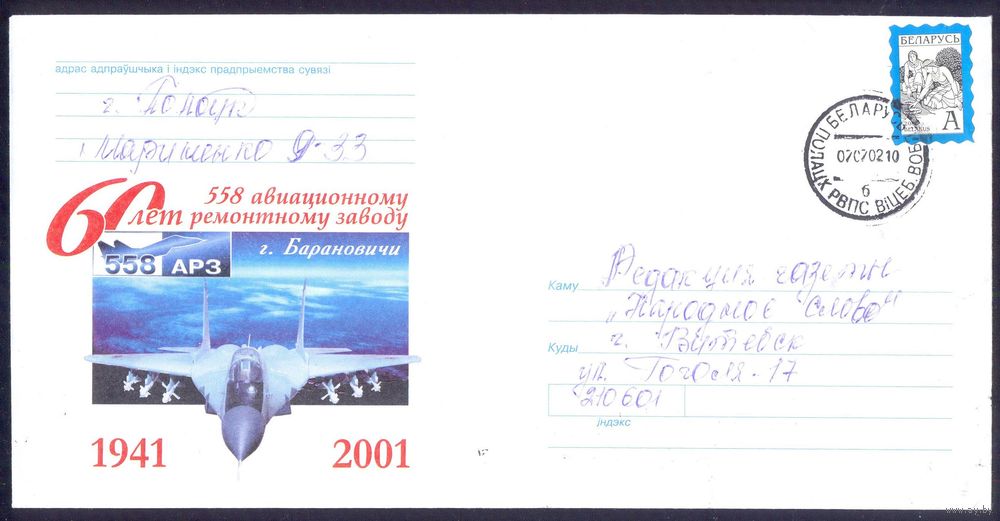 адрас адпраўшчыка і індэкс прадпрыемства сувязі
г. Полоцк
Марушенко 9-33
60 лет
558 авиационному
ремонтному заводу
г. Барановичи
558 АРЗ
1941 2001
БЕЛАРУСЬ
А
БЕЛАРУСЬ
07070210
б
ПОЛАЦК РВПС ВІЦЕБ. ВОБ
Каму
Редакция газеты
"Народное слово"
Куды
г. Витебск
ул. Гоголя-17
210601
індэкс
www.ay.by